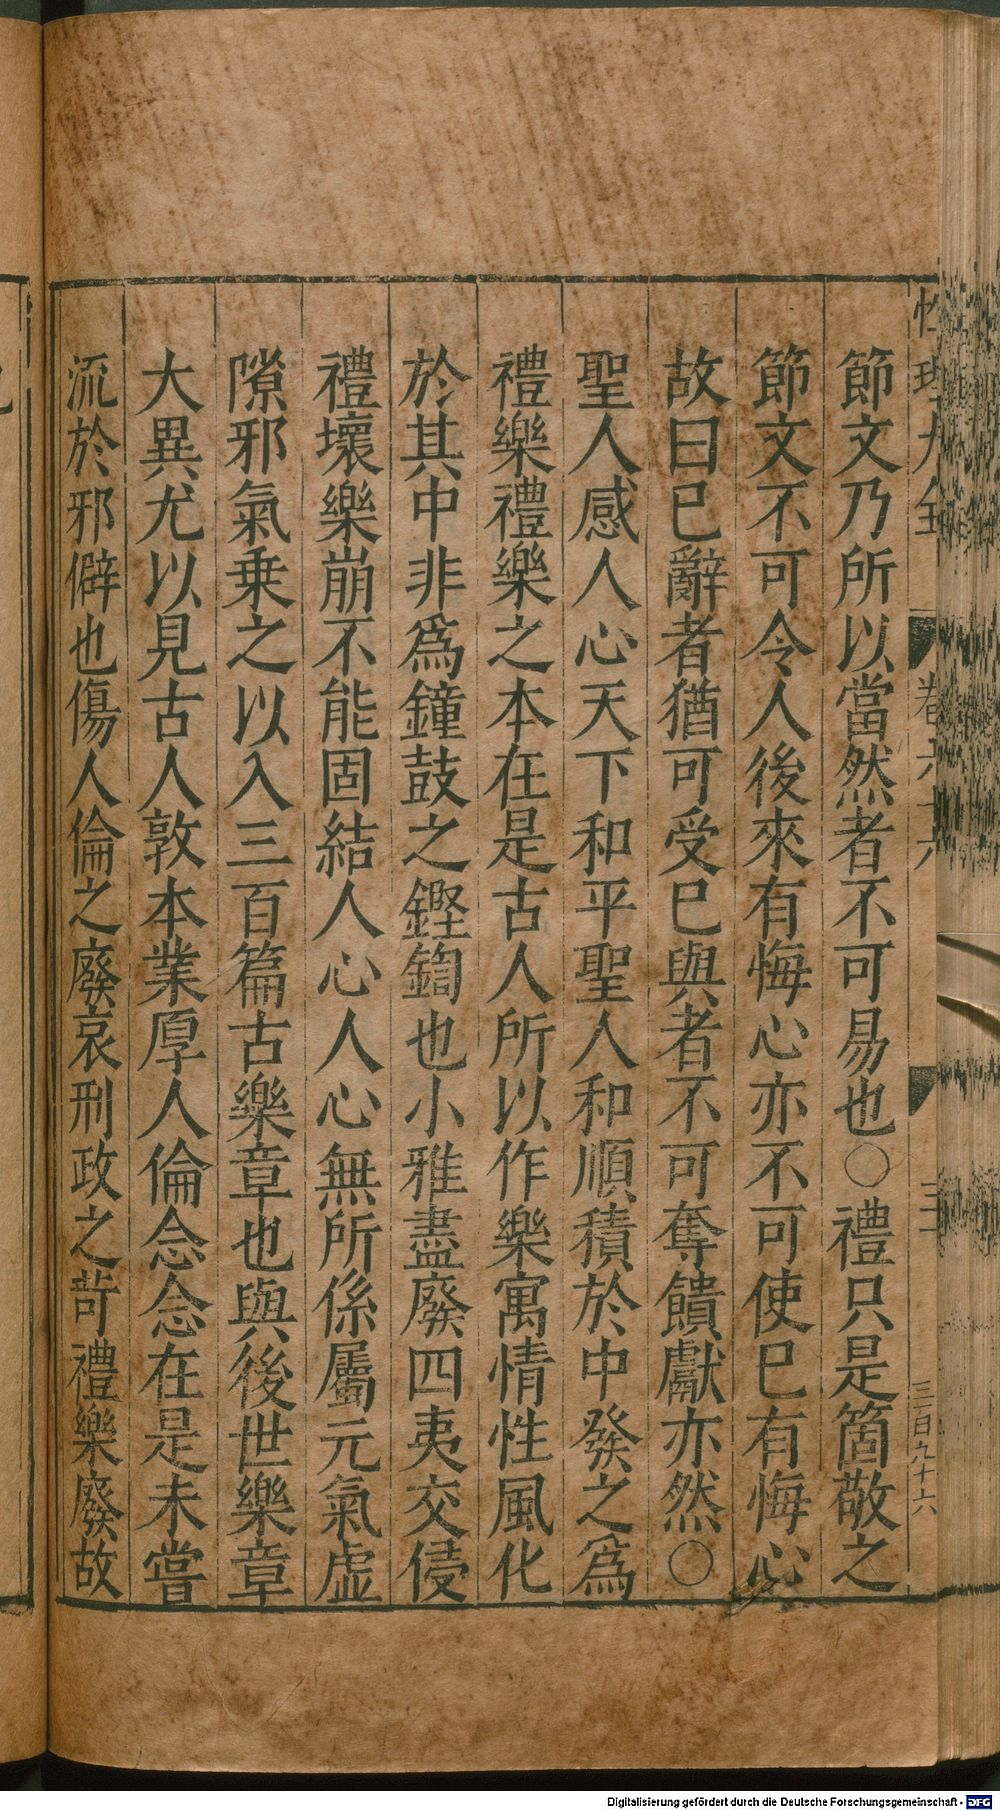 性理大全 卷六十六 三 三百九十六
節文乃所以當然者不可易也○禮只是箇敬之
節文不可令人後來有悔心亦不可使已有悔心
故曰已辭者猶可受已與者不可奪饋獻亦然○
聖人感人心天下和平聖人和順積於中發之爲
禮樂禮樂之本在是古人所以作樂寓情性風化
於其中非爲鐘鼓之鏗鍧也小雅盡廢四夷交侵
禮壞樂崩不能固結人心人心無所係屬元氣虛
隙邪氣乗之以入三百篇古樂章也與後世樂章
大異尤以見古人敦本業厚人倫念念在是未嘗
流於邪僻也傷人倫之廢哀刑政之苛禮樂廢故
Digitalisierung gefördert durch die Deutsche Forschungsgemeinschaft - DFG